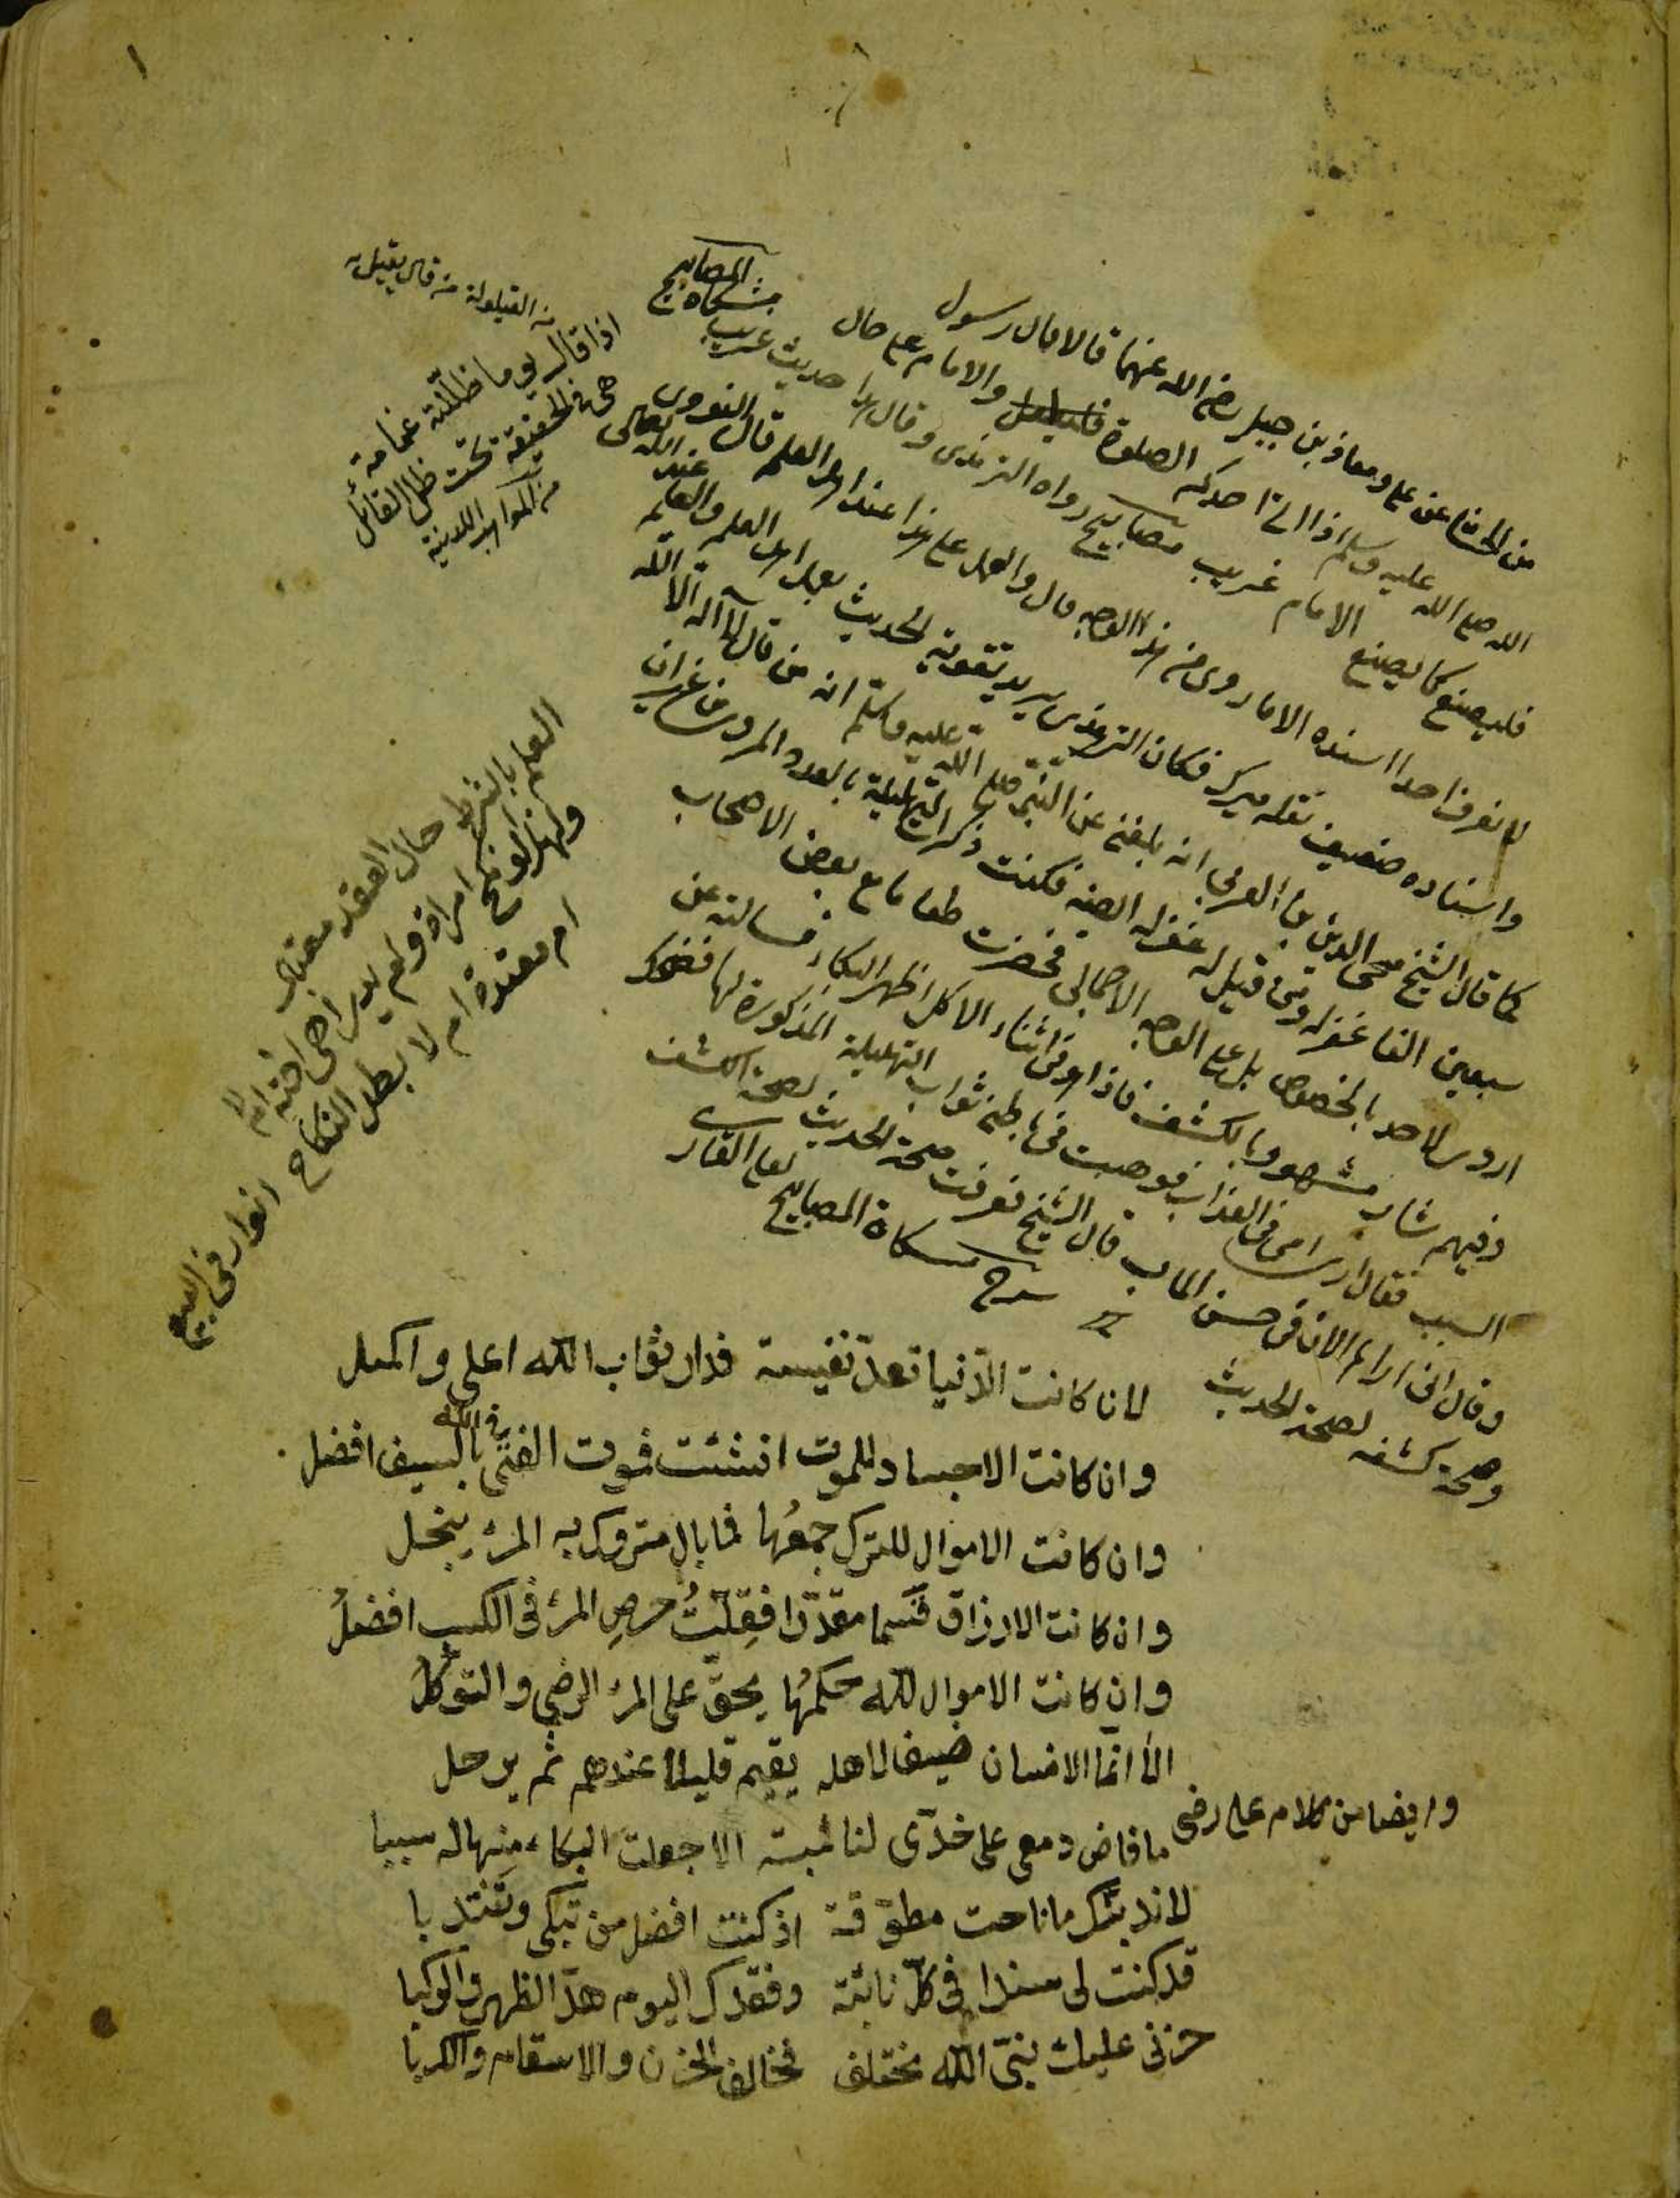 ١
من الحسان عن علي ومعاذ بن جبل رضي الله عنهما قالا قال رسول
الله صلى الله عليه وسلم اذا اتى احدكم الصلوة والامام على حال
فليصنع كما يصنع الامام غريب مصابيح رواه الترمذى وقال هذا حديث غريب
مشكاة المصابيح
لا نعرف احدا اسنده الا ما روى من هذا الوجه قال والعمل على هذا عند اهل العلم قال النووى
واسناده ضعيف نقله ميرك فكان الترمذى يريد تقوية الحديث بعمل اهل العلم والعلم عند الله تعالى
كما قال الشيخ محى الدين بن العربى انه بلغنى عن النبى صلى الله عليه وسلم انه من قال لا اله الا الله
سبعين الفا غفر له ومن قيل له غفر له ايضا فكنت ذكرت التهليلة بالعدد المروى من غير ان
اروى لاحد بالخصوص بل على الوجه الاجمالى فحضرت طعاما مع بعض الاصحاب
وفيهم شاب مشهور بالكشف فاذا هو فى اثناء الاكل اظهر البكاء فسالته عن
السبب فقال ارى امى فى العذاب فوهبت فى باطنى ثواب التهليلة المذكورة لها فضحك
وقال انى اراها الان فى حسن الماب قال الشيخ فعرفت صحة الحديث بصحة كشفه
وصحة كشفه بصحة الحديث شرح مشكاة المصابيح لعلى القارى
من القيلولة من قال يقيل
اذا قال يوما ظللته غمامة
هى فى الحقيقة تحت ظل القائل
من المواهب اللدنية
العلم بالشرط حال العقد معتبر
ولهذا لو نكح امراة ولم يدر اهى اخته ام لا
ام معتدة ام لا بطل النكاح انوار فى البيع
لان كانت الدنيا تعد نفيسة فدار ثواب الله اعلى واكمل
وان كانت الاجساد للموت انشئت فموت الفتى فى الله بالسيف افضل
وان كانت الاموال للترك جمعها فما بال متروك به المرء يبخل
وان كانت الارزاق قسما مقدرا فقلت حرص المرء فى الكسب افضل
وان كانت الاموال لله حكمها يحق على المرء الرضى والتوكل
الا انما الانسان ضيف لاهله يقيم قليلا عندهم ثم يرحل
وايضا من كلام على رضى
ما فاض دمعى على خدى لنائبة الا جعلت البكاء منها له سببا
لاندبنك ما ناحت مطوقة اذ كنت افضل من تبكى وتنتدبا
قد كنت لى سندا فى كل نائبة وفقدك اليوم هد الظهر والركبا
حزنى عليك نبى الله مختلف فخالف الحزن والاسقام والكربا